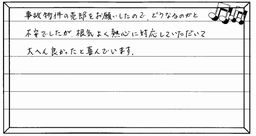 事故物件の売却をお願いしたので、どうなるのかと
不安でしたが、根気よく熱心に対応していただいて
大へん良かったと喜んでいます。